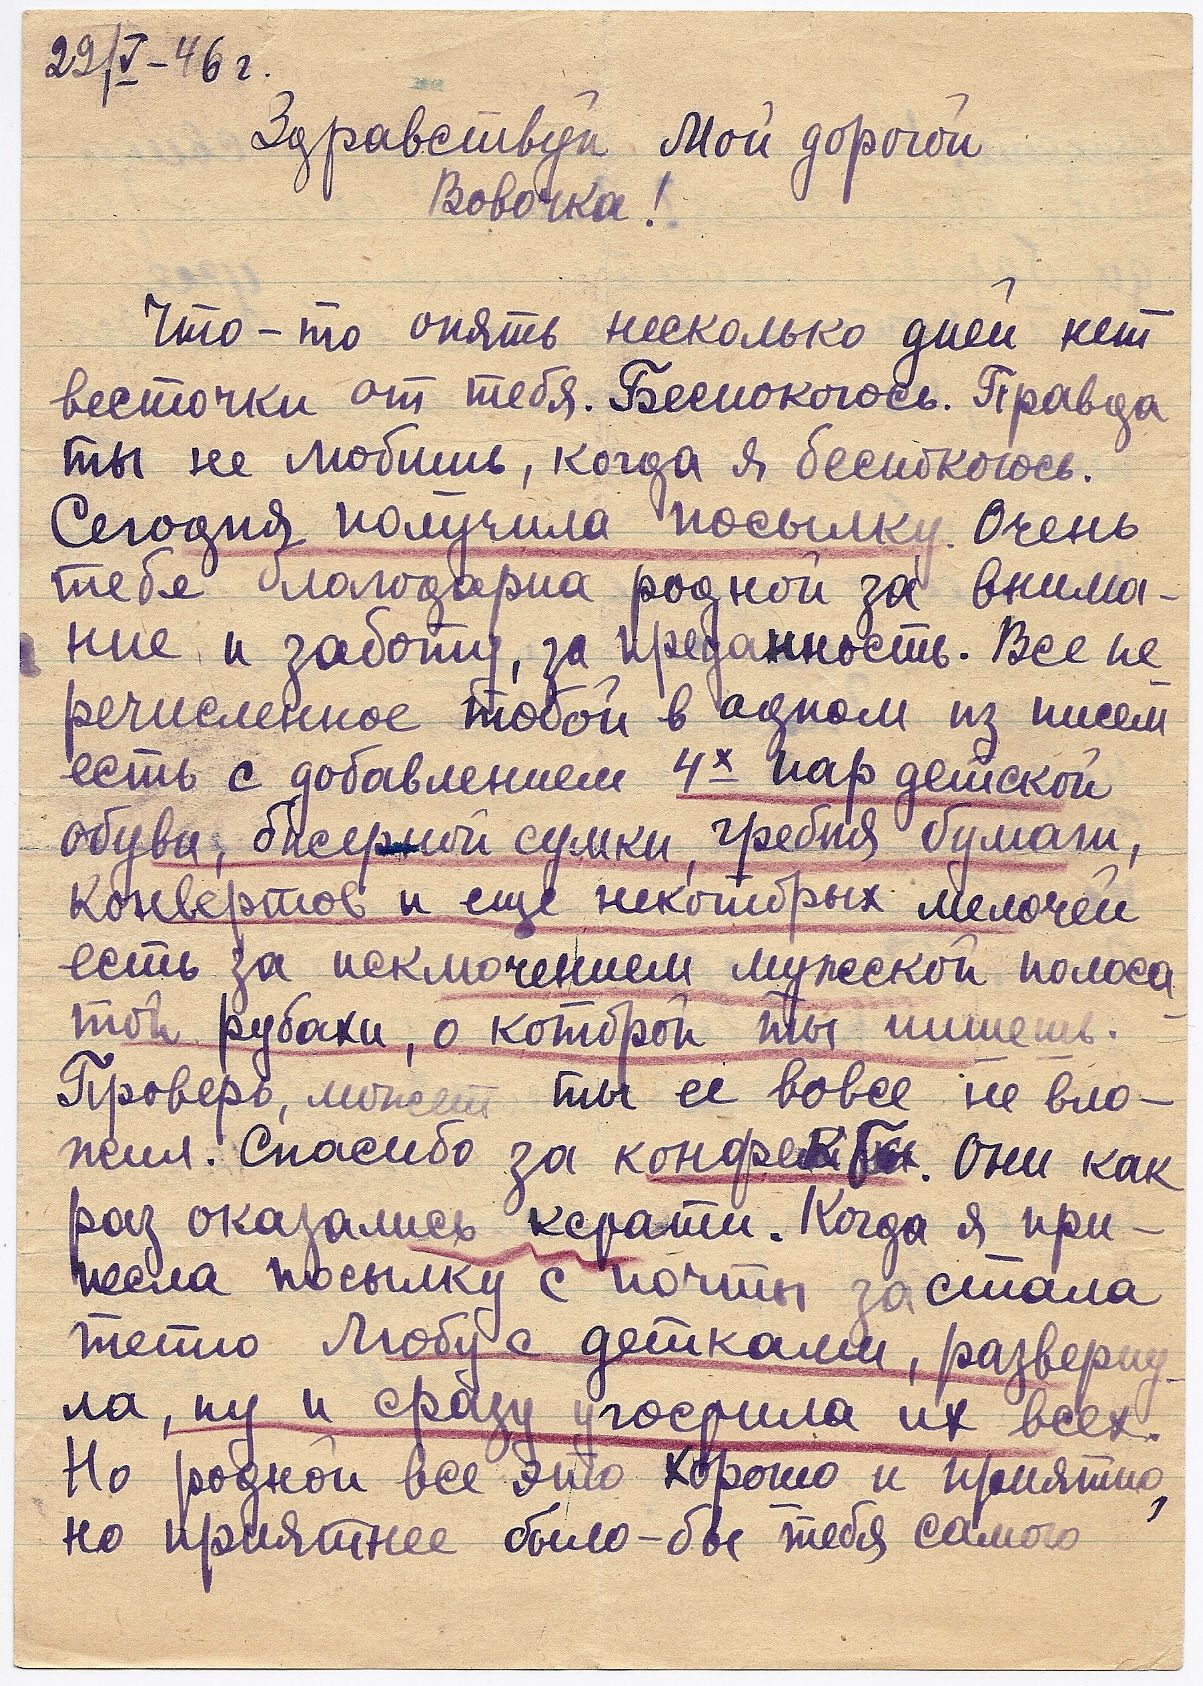 29/V-46 г.
Здравствуй Мой дорогой
Вовочка!
Что-то опять несколько дней нет
весточки от тебя. Беспокоюсь. Правда
ты не любишь, когда я беспокоюсь.
Сегодня получила посылку. Очень
тебе благодарна родной за внима-
ние и заботу, за преданность. Все пе
речисленное тобой в одном из писем
есть с добавлением 4х пар детской
обуви, бисерной сумки, гребня бумаги,
конвертов и еще некоторых мелочей
есть за исключением мужской полоса-
той рубахи, о которой ты пишешь.
Проверь, может ты ее вовсе не вло-
жил. Спасибо за конфекты. Они как
раз оказались кстати. Когда я при-
несла посылку с почты застала
тетю Любу с детками, разверну-
ла, ну и сразу угостила их всех.
Но родной все это хорошо и приятно,
но приятнее было-бы тебя самого